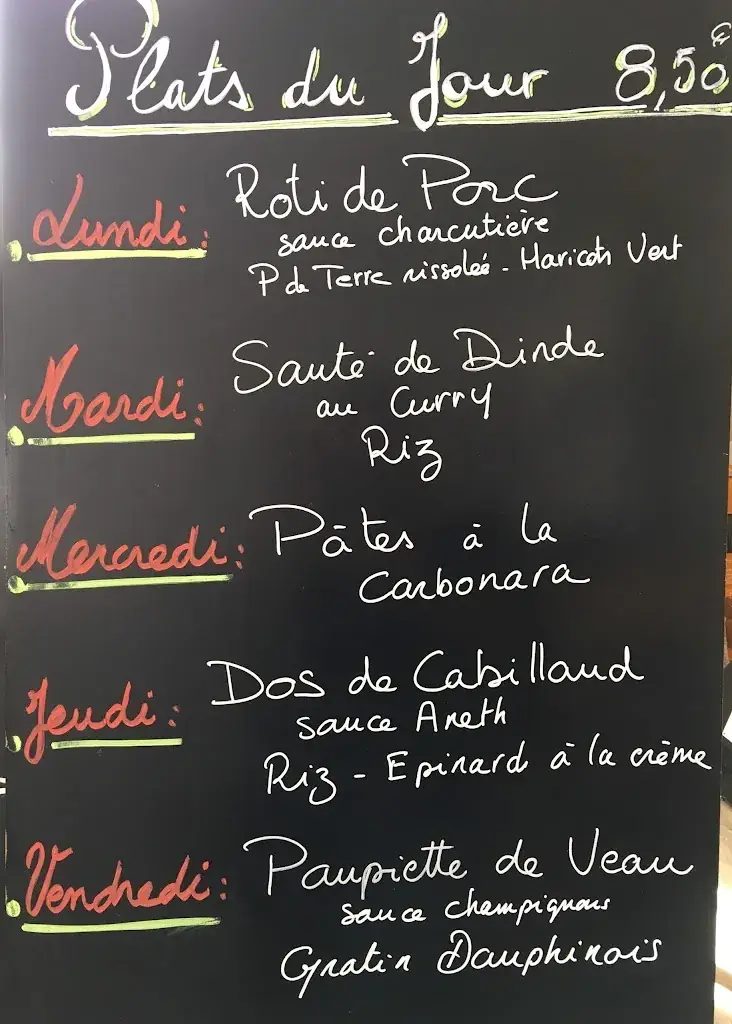 Plats du Jour 8,50€
Lundi: Roti de Porc
sauce charcutière
P de Terre rissolée - Haricots Vert
Mardi: Sauté de Dinde
au Curry
Riz
Mercredi: Pâtes à la
Carbonara
Jeudi: Dos de Cabillaud
sauce Aneth
Riz - Epinard à la crème
Vendredi: Paupiette de Veau
sauce champignons
Gratin Dauphinois